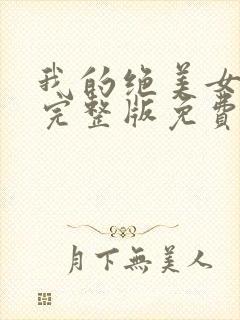 我的绝美女
完整版免費
月下無美人